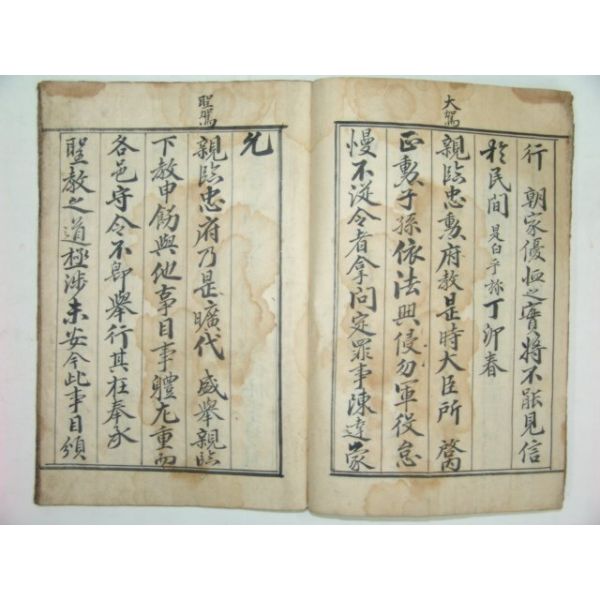 行 朝家優恤之實將不能見信
於民間 是白乎旀 丁卯春
大駕
親臨忠勳府教是時大臣所 啓內
正勳子孫依法與侵勿軍役怠
慢不從令者拿問定罪事陳達蒙
允
聖駕
親臨忠府乃是曠代 盛舉親臨
下教申飭與他事目事體尤重而
各邑守令不即舉行其在奉承
聖教之道極涉未安今此事目頒